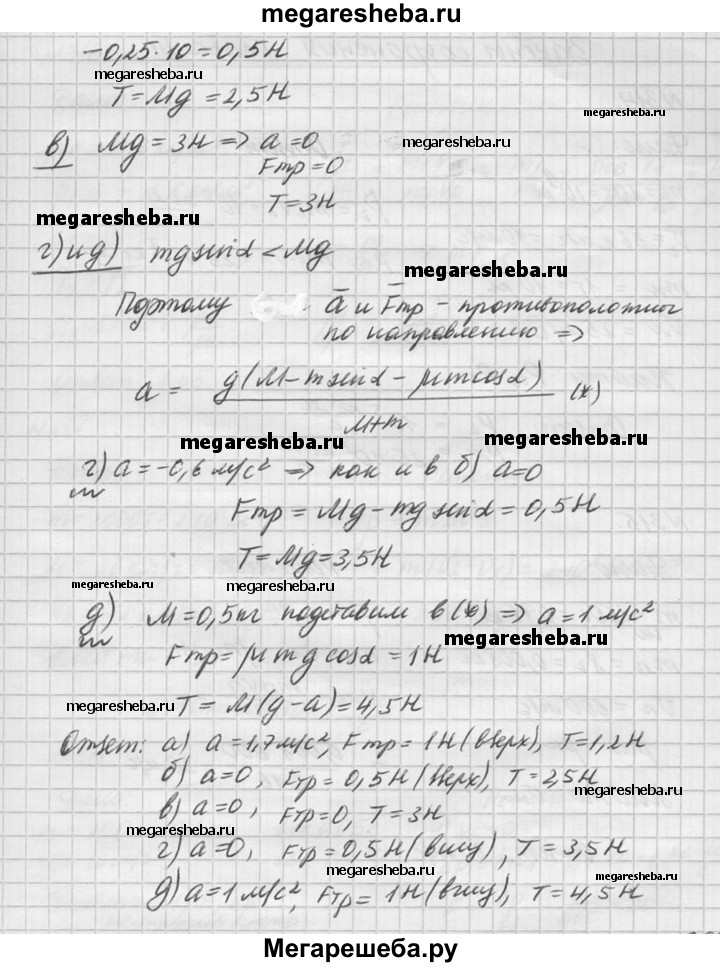 megaresheba.ru
−0,25·10 = 0,5Н
megaresheba.ru
T = Mg = 2,5Н
megaresheba.ru
в) Mg = 3Н => a = 0
megaresheba.ru
Fтр = 0
T = 3Н
megaresheba.ru
г) и д) mg sin α < Mg
megaresheba.ru
Поэтому a̅ и F̅тр – противоположны
по направлению =>
a = g(M − m sin α − μm cos α) / (M+m) (*)
megaresheba.ru
megaresheba.ru
г) a = −0,6 м/с² => как и в б) a = 0
Fтр = Mg − mg sin α = 0,5Н
T = Mg = 3,5Н
megaresheba.ru
д) M = 0,5кг подставим в (*) => a = 1 м/с²
megaresheba.ru
Fтр = μmg cos α = 1Н
megaresheba.ru
T = M(g − a) = 4,5Н
Ответ: а) a = 1,7 м/с², Fтр = 1Н (вверх), T = 1,2Н
б) a = 0, Fтр = 0,5Н (вверх), T = 2,5Н
в) a = 0, Fтр = 0, T = 3Н
megaresheba.ru
г) a = 0, Fтр = 0,5Н (вниз), T = 3,5Н
megaresheba.ru
д) a = 1 м/с², Fтр = 1Н (вниз), T = 4,5Н
megaresheba.ru
Мегарешеба.ру